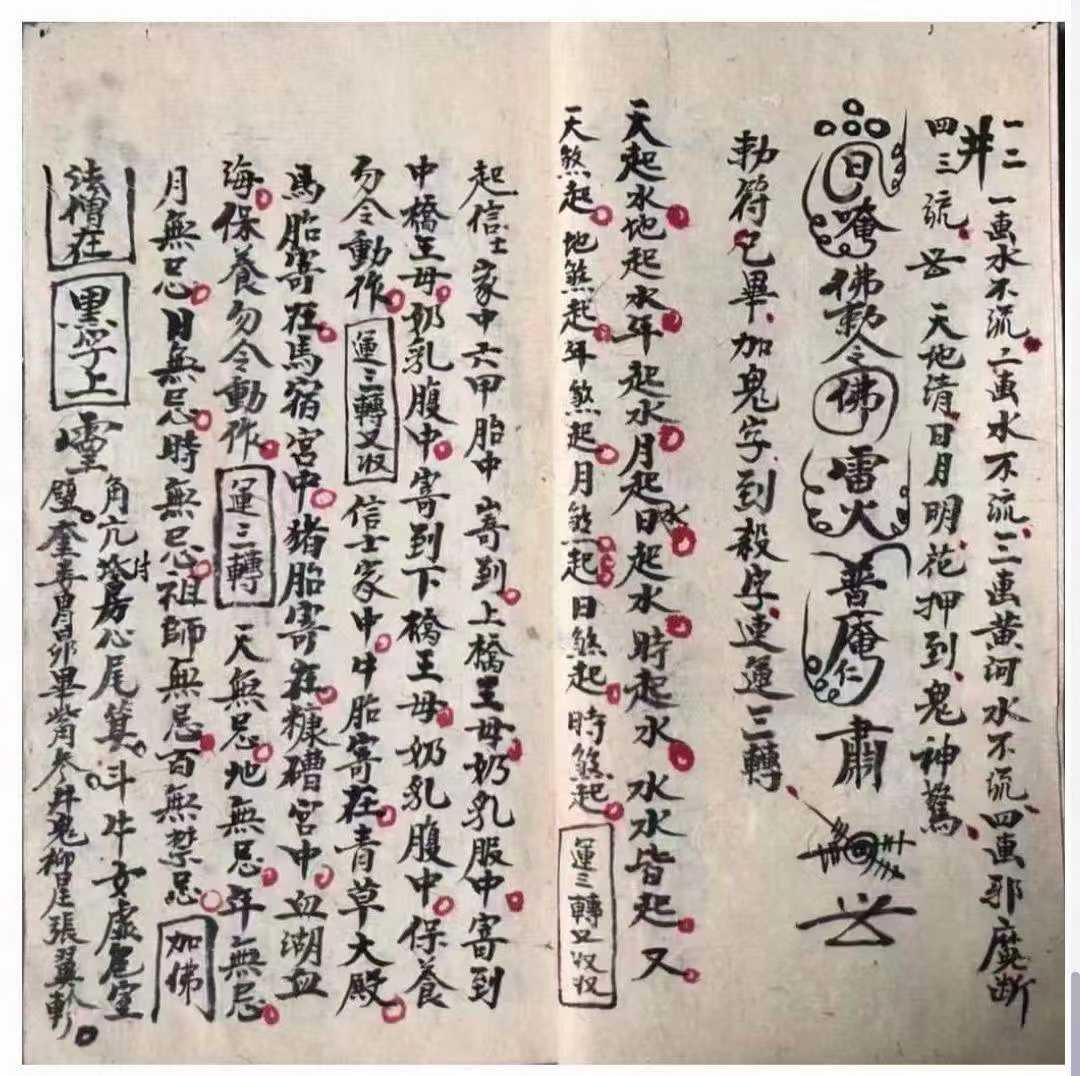 一二
井 一畫水不流二畫水不流三畫黃河水不流四畫邪魔斷
四三 㐬 天地清日月明花押到鬼神驚
日唵佛勅令佛雷火普庵仁肅
勅符已畢加鬼字到殺字連運三轉
天起水地起水年起水月起水日起水時起水水水皆起又
天煞起地煞起年煞起月煞起日煞起時煞起 運三轉又收收
起信士家中六甲胎中寄到上橋王母奶乳服中寄到
中橋王母奶乳腹中寄到下橋王母奶乳腹中保養
勿令動作 運三轉又收 信士家中牛胎寄在青草大殿
馬胎寄在馬宿宮中猪胎寄在糠槽宮中血湖血
海保養勿令動作 運三轉 天無忌地無忌年無忌
月無忌日無忌時無忌祖師無忌百無禁忌 加佛
法僧在 上 角亢房心尾箕斗牛女虛危室
壁奎婁胃昴畢觜參井鬼柳星張翼軫